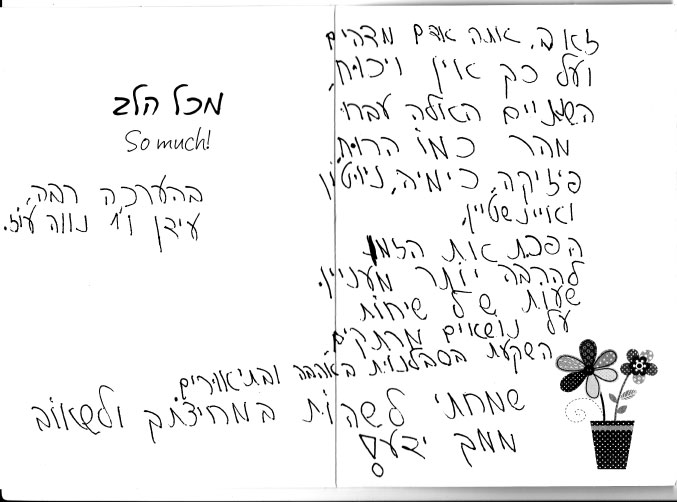 זאב, אתה אדם מדהים
ועל כך אין ויכוח,
השעתיים האלה עברו
מהר כמו הרוח
פיזיקה, כימיה, ניוטון
ואיינשטיין,
הפכת את הזמן
להרבה יותר מעניין.
שעות של שיחות
על נושאים מרתקים
השקעת בסבלנות באהבה ובתיאורים
שמחתי לשהות במחיצתך ולשאוב
ממך ידע!
מכל הלב
So much!
בהערכה רבה,
עידן וי' נווה עוז.